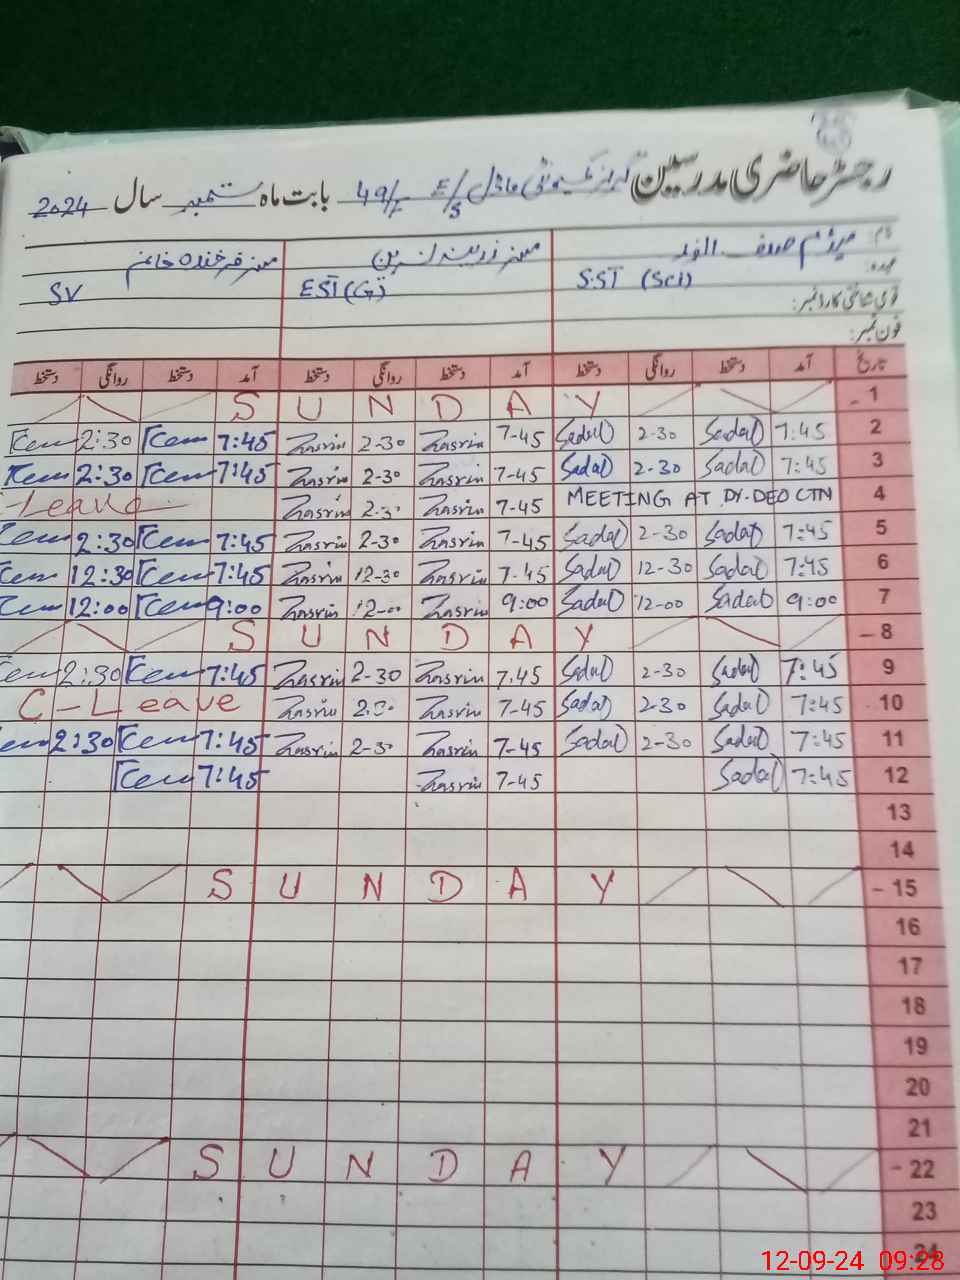 رجسٹر حاضری مدرسین گورنمنٹ کمیونٹی ماڈل E/S 49/F بابت ماہ ستمبر سال 2024
نام: میڈم صدف الوند مسز زرینہ نسرین مسز فرخندہ خانم
عہدہ: S.ST (Sci) EST (G) SV
قومی شناختی کارڈ نمبر:
فون نمبر:
تاریخ آمد دستخط روانگی دستخط آمد دستخط روانگی دستخط آمد دستخط روانگی دستخط
S U N D A Y - 1
2:30 7:45 Zasrin 2-30 Zasrin 7-45 Sadaf 2-30 Sadaf 7:45 2
2:30 7:45 Zasrin 2-30 Zasrin 7-45 Sadaf 2-30 Sadaf 7:45 3
Leave Zasrin 2-3 Zasrin 7-45 MEETING AT DY. DEO CTN 4
2:30 7:45 Zasrin 2-30 Zasrin 7-45 Sadaf 2-30 Sadaf 7:45 5
12:30 7:45 Zasrin 12-30 Zasrin 7-45 Sadaf 12-30 Sadaf 7:45 6
12:00 9:00 Zasrin 12-00 Zasrin 9:00 Sadaf 12-00 Sadaf 9:00 7
S U N D A Y - 8
2:30 7:45 Zasrin 2-30 Zasrin 7.45 Sadaf 2-30 Sadaf 7:45 9
C - Leave Zasrin 2-30 Zasrin 7-45 Sadaf 2-30 Sadaf 7:45 10
2:30 7:45 Zasrin 2-30 Zasrin 7-45 Sadaf 2-30 Sadaf 7:45 11
7:45 Zasrin 7-45 Sadaf 7:45 12
13
14
S U N D A Y - 15
16
17
18
19
20
21
S U N D A Y - 22
23
24
12-09-24 09:28